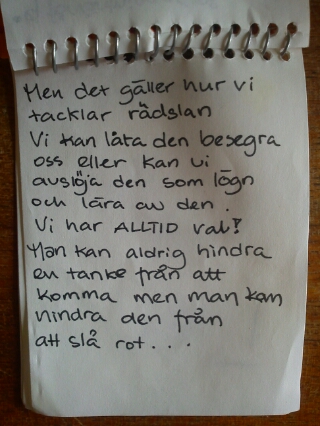 Men det gäller hur vi
tacklar rädslan
Vi kan låta den besegra
oss eller kan vi
avslöja den som lögn
och lära av den.
Vi har ALLTID val!
Man kan aldrig hindra
en tanke från att
komma men man kan
hindra den från
att slå rot...